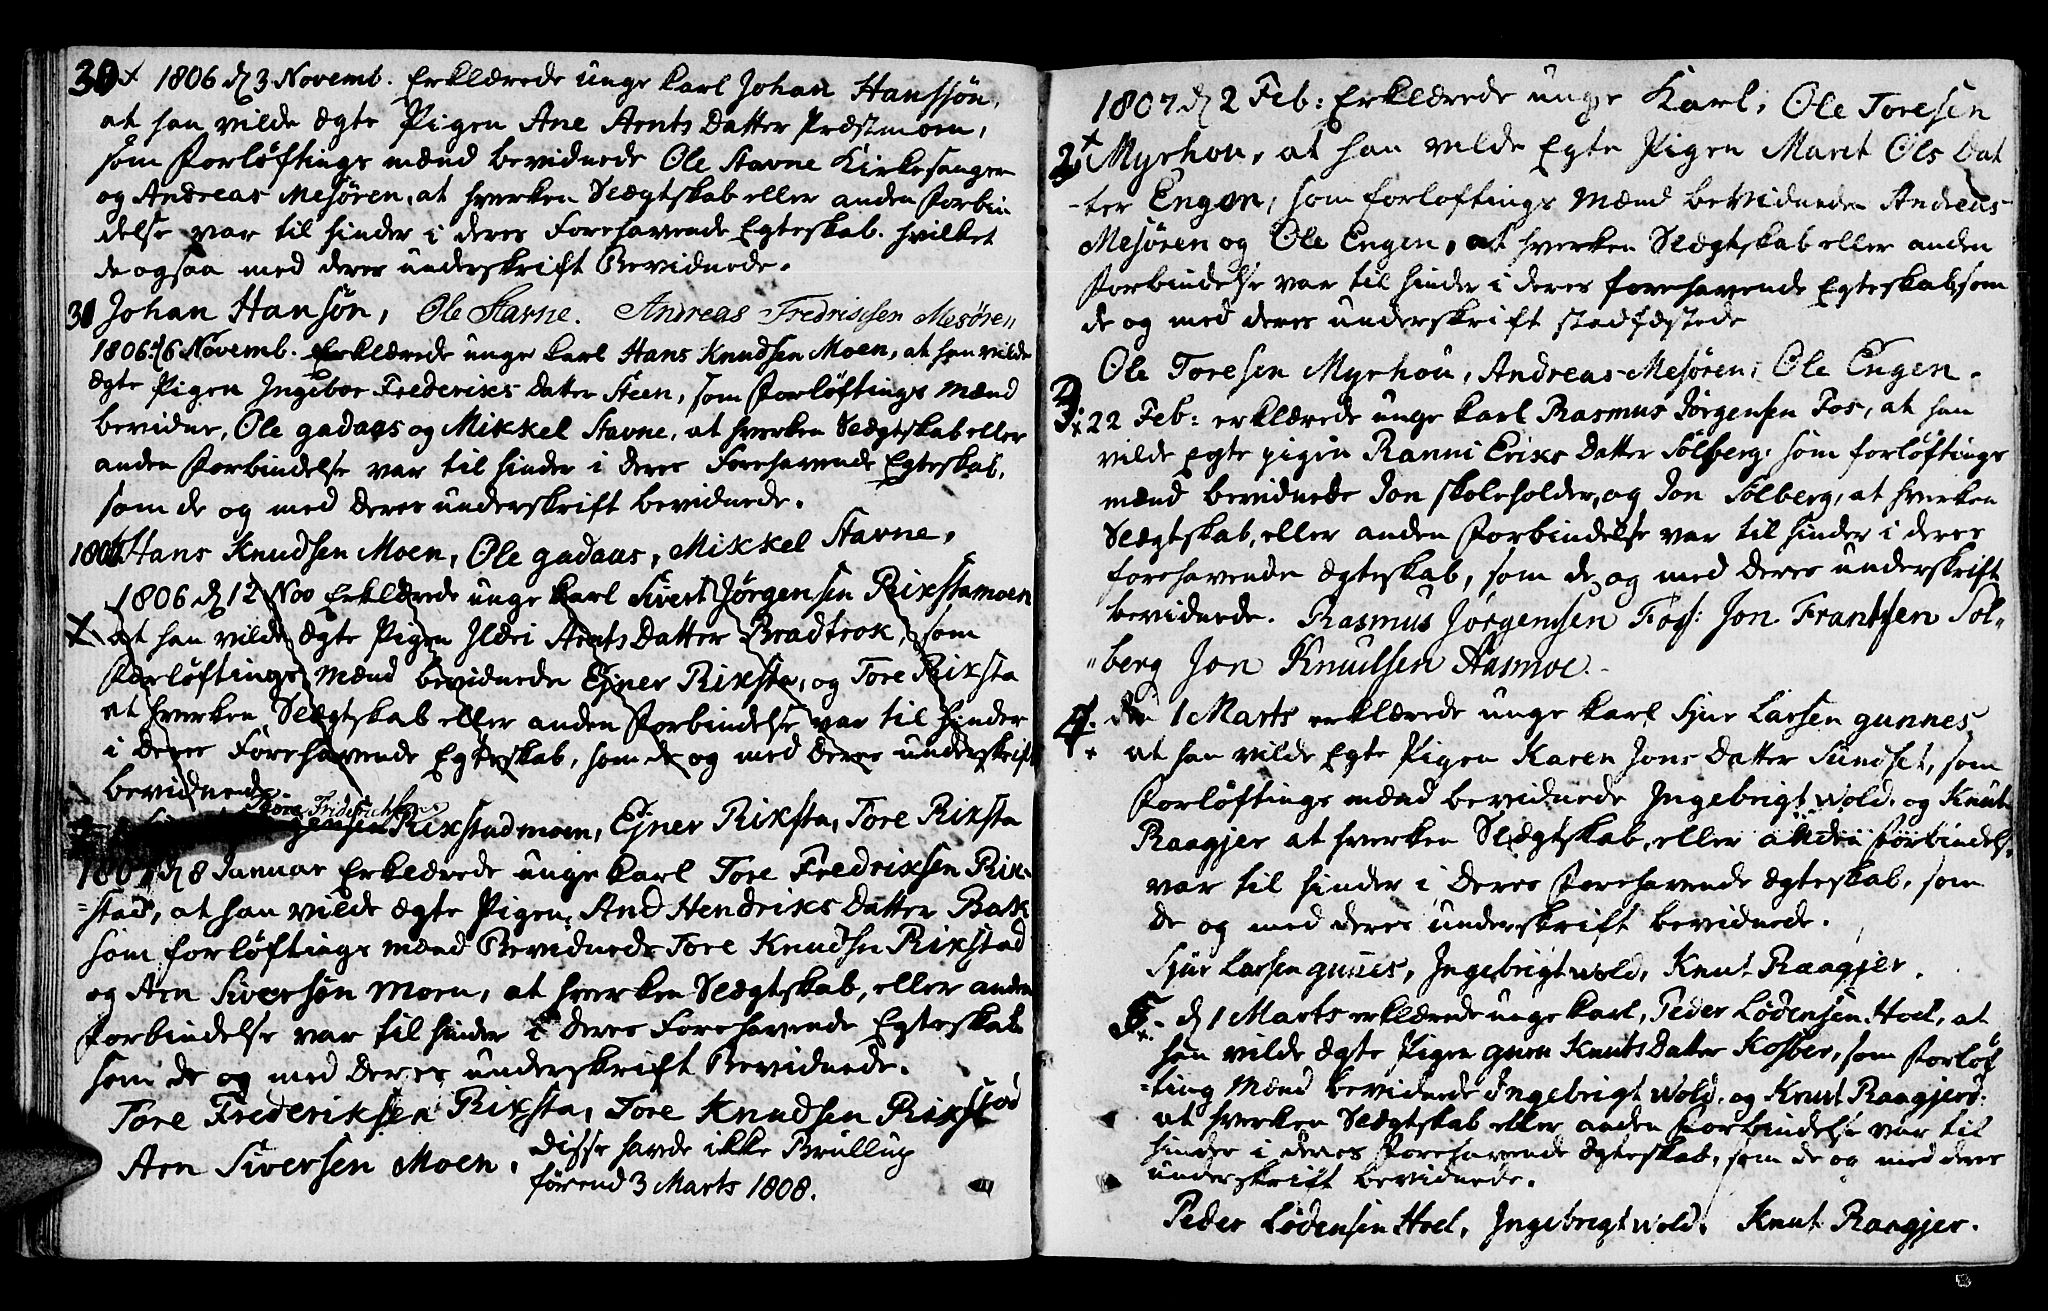 30 x 1806 d 3 Novemb. Erklærede unge karl Johan Hanssøn,
at han vilde ægte Pigen Ane Arnts Datter Præstmoen,
som Forløftings mænd bevidnede Ole Stavne Kirkesanger
og Andreas Mesøren, at hverken Slægtskab eller anden Forbin
delse var til hinder i deres Forehavende Egteskab. hvilket
de ogsaa med deres underskrift Bevidnede.
31 Johan Hansøn, Ole Stavne. Andreas Fredrissen Mesøren
1806. d 6 Novemb. Erklærede unge karl Hans Knudsen Moen, at han vilde
ægte Pigen Ingebor Frederiks datter Steen, som Forløftings mænd
bevidne, Ole gadaas og Mikkel Stavne, at hverken Slægtskab eller
anden Forbindelse var til hinder i deres Forehavende Egteskab,
som de og med deres underskrift bevidnede.
Hans Knudsen Moen, Ole gadaas, Mikkel Stavne,
1806 d 12 Nov Erklærede unge karl Sivert Jørgensen Rixstamoen
x at han vilde ægte Pigen Arnts Datter Bradtrok, som
Forløftings mænd bevidnede Ejner Rixsta, og Tore Rixsta
at hverken Slægtskab eller anden Forbindelse var til hinder
i deres Forehavende Egteskab, som de og med deres underskrift
bevidnede
Tore Friderichsens
Rixstadmoen, Ejner Rixsta, Tore Rixsta
1807 d 8 Januar Erklærede unge karl Tore Fredrixsen Rix-
=stad, at han vilde ægte Pigen, And Hendriks Datter Bak
som forløftings mænd Bevidnede Tore Knudsn Rixstad
og Arn Siversøn Moen, at hverken Slægtskab, eller anden
Forbindelse var til hinder i deres Forehavende Egteskab
som de og med deres underskrift Bevidnede.
Tore Frederiksen Rixsta, Tore Knudsen Rixstad
Arn Siversen Moen, disse havde ikke Brullup
førend 3 Marts 1808.
1807 d 2 Feb: Erklærede unge Karl, Ole Toresen
2 x Myrhou, at han vilde Egte Pigen Marit Ols Dat
-ter Engen, som forløftings Mænd bevidneden Andreas
Mesøren og Ole Engen, at hverken Slægtskab eller anden
Forbindelse var til hinder i deres forehavende Egteskab, som
de og med deres underskrift stadfæstede
Ole Toresen Myrhou, Andreas Mesøren, Ole Engen.
3. x 22 Feb: erklærede unge karl Rasmus Jørgensen Fos, at han
vilde Egte pigen Ranni Eriks Datter Sølberg. som forløftings
mænd bevidnede Jon skoleholder, og Jon Sølberg, at hverken
Slægtskab, eller anden Forbindelse var til hinder i deres
forehavende ægteskab, som de og med deres underskrift
bevidnede. Rasmus Jørgensen Fos: Jon Frantsen Søl-
"berg Jon Knudsen Aasmoe.
4. x den 1 Marts erklærede unge karl Sjur Larsen gunnes,
at han vilde Egte Pigen Karen Jons Datter Sundset, som
Forløftings mænd bevidnede Ingebrigt wold, og Knut
Raagjer at hverken Slægtskab, eller anden Forbindels,
var til hinder i deres Forehavende ægteskab, som
de og med deres underskrift bevidnede.
Sjur Larsen gunes, Ingebrigt wold, Knut Raagjer.
5. x d 1 Marts erklærede unge karl, Peder Lødensen Hoel, at
han vilde ægte Pigen guru Knuts Datter Kosber, som Forløf
=ting Mænd bevidnede Ingebrigt wold, og Knut Raagjerd:
at hverken Slægtskab eller anden Forbindelse var til
hinder i deres Forehavende ægteskab, som de og med deres
underskrift bevidnede.
Peder Lødensen Hoel, Ingebregt wold, Knut Raagjer.